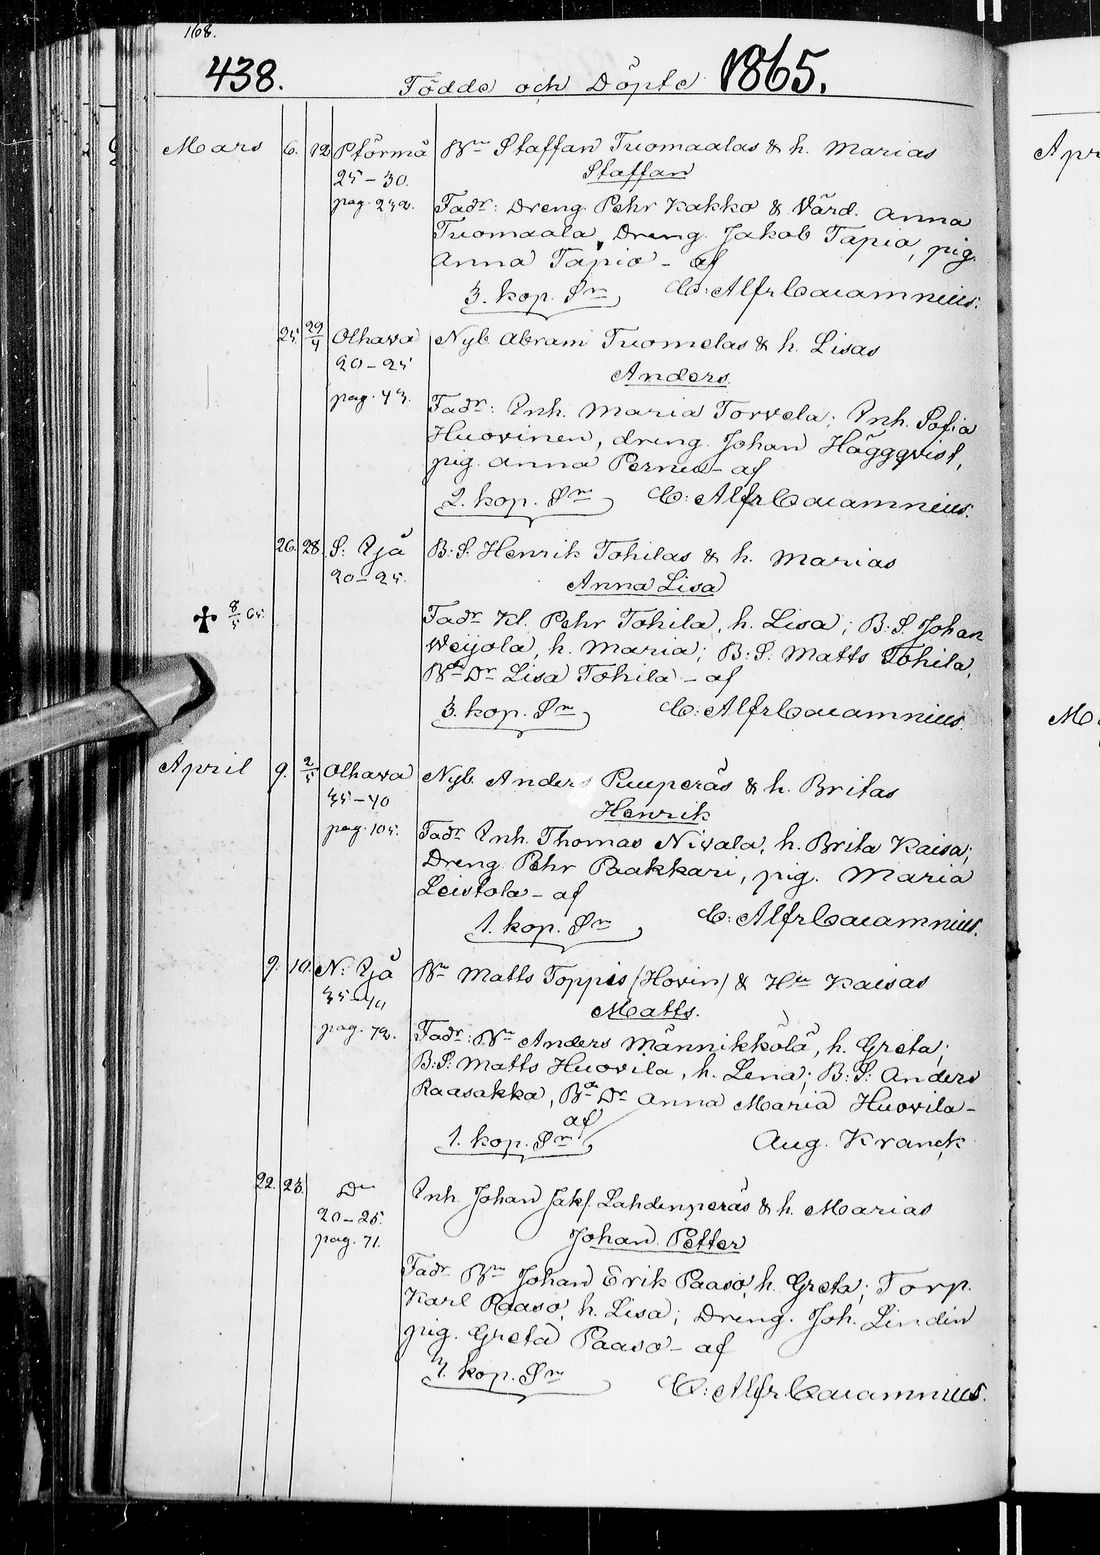 168.
438. Födde och Döpte 1865.
Mars 6. 12 Ptörmä Bn Staffan Tuomaalas & h. Marias
25-30. Staffan
pag. 242. Fadr: Dreng. Pehr Kakko & Värd. Anna
Tuomaala, Dreng. Jakob Tapio, pig.
Anna Tapio - af
3. kop. Sr C: Alfr Cajamnius.
25. 29/4 Olhava Nyb. Abram Tuomelas & h. Lisas
20-25 Anders.
pag. 43. Fadr: Inh. Maria Torvela; Inh. Sofia
Huovinen, dreng. Johan Häggqvist,
pig. Anna Pernu - af
2. kop. Sm C: Alfr Cajamnius.
26. 28. S: Ijå B: S. Henrik Tohilas & h. Marias
20-25. Anna Lisa
8/5 65. Fadr Kl. Pehr Tohila, h. Lisa; B: S. Johan
Weijola, h. Maria; B: S: Matts Tohila,
Bd: Dr Lisa Tohila - af
3. kop. Sm C: Alfr Cajamnius.
April 9. 2/5 Olhava Nyb Anders Puuperäs & h. Britas
35-40 Henrik
pag. 105. Fadr Inh. Thomas Nivala, h. Brita Kaisa;
Dreng Pehr Paakkari, pig. Maria
Leistola - af
1. kop. Sm C: Alfr Cajamnius.
9. 10. N: Ijå Bn Matts Toppis (Hovin) & Hu Kaisas
35-40 Matts.
pag. 72. Fadr: Bn Anders Männikkölä, h. Greta;
B: S: Matts Huovila, h. Lena; B: S: Anders
Raasakka, Bd Dr Anna Maria Huovila -
af
1. kop. Sm Aug. Kranck
22. 23. Do Inh. Johan Jakf. Lahdenperäs & h. Marias
20-25. Johan Petter
pag. 71. Fadr Bn Johan Erik Paaso, h. Greta; Torp.
Karl Paaso, h. Lisa; Dreng. Joh. Lindin
pig. Greta Paaso - af
kop. Sm C: Alfr. Cajamnius.
Apr